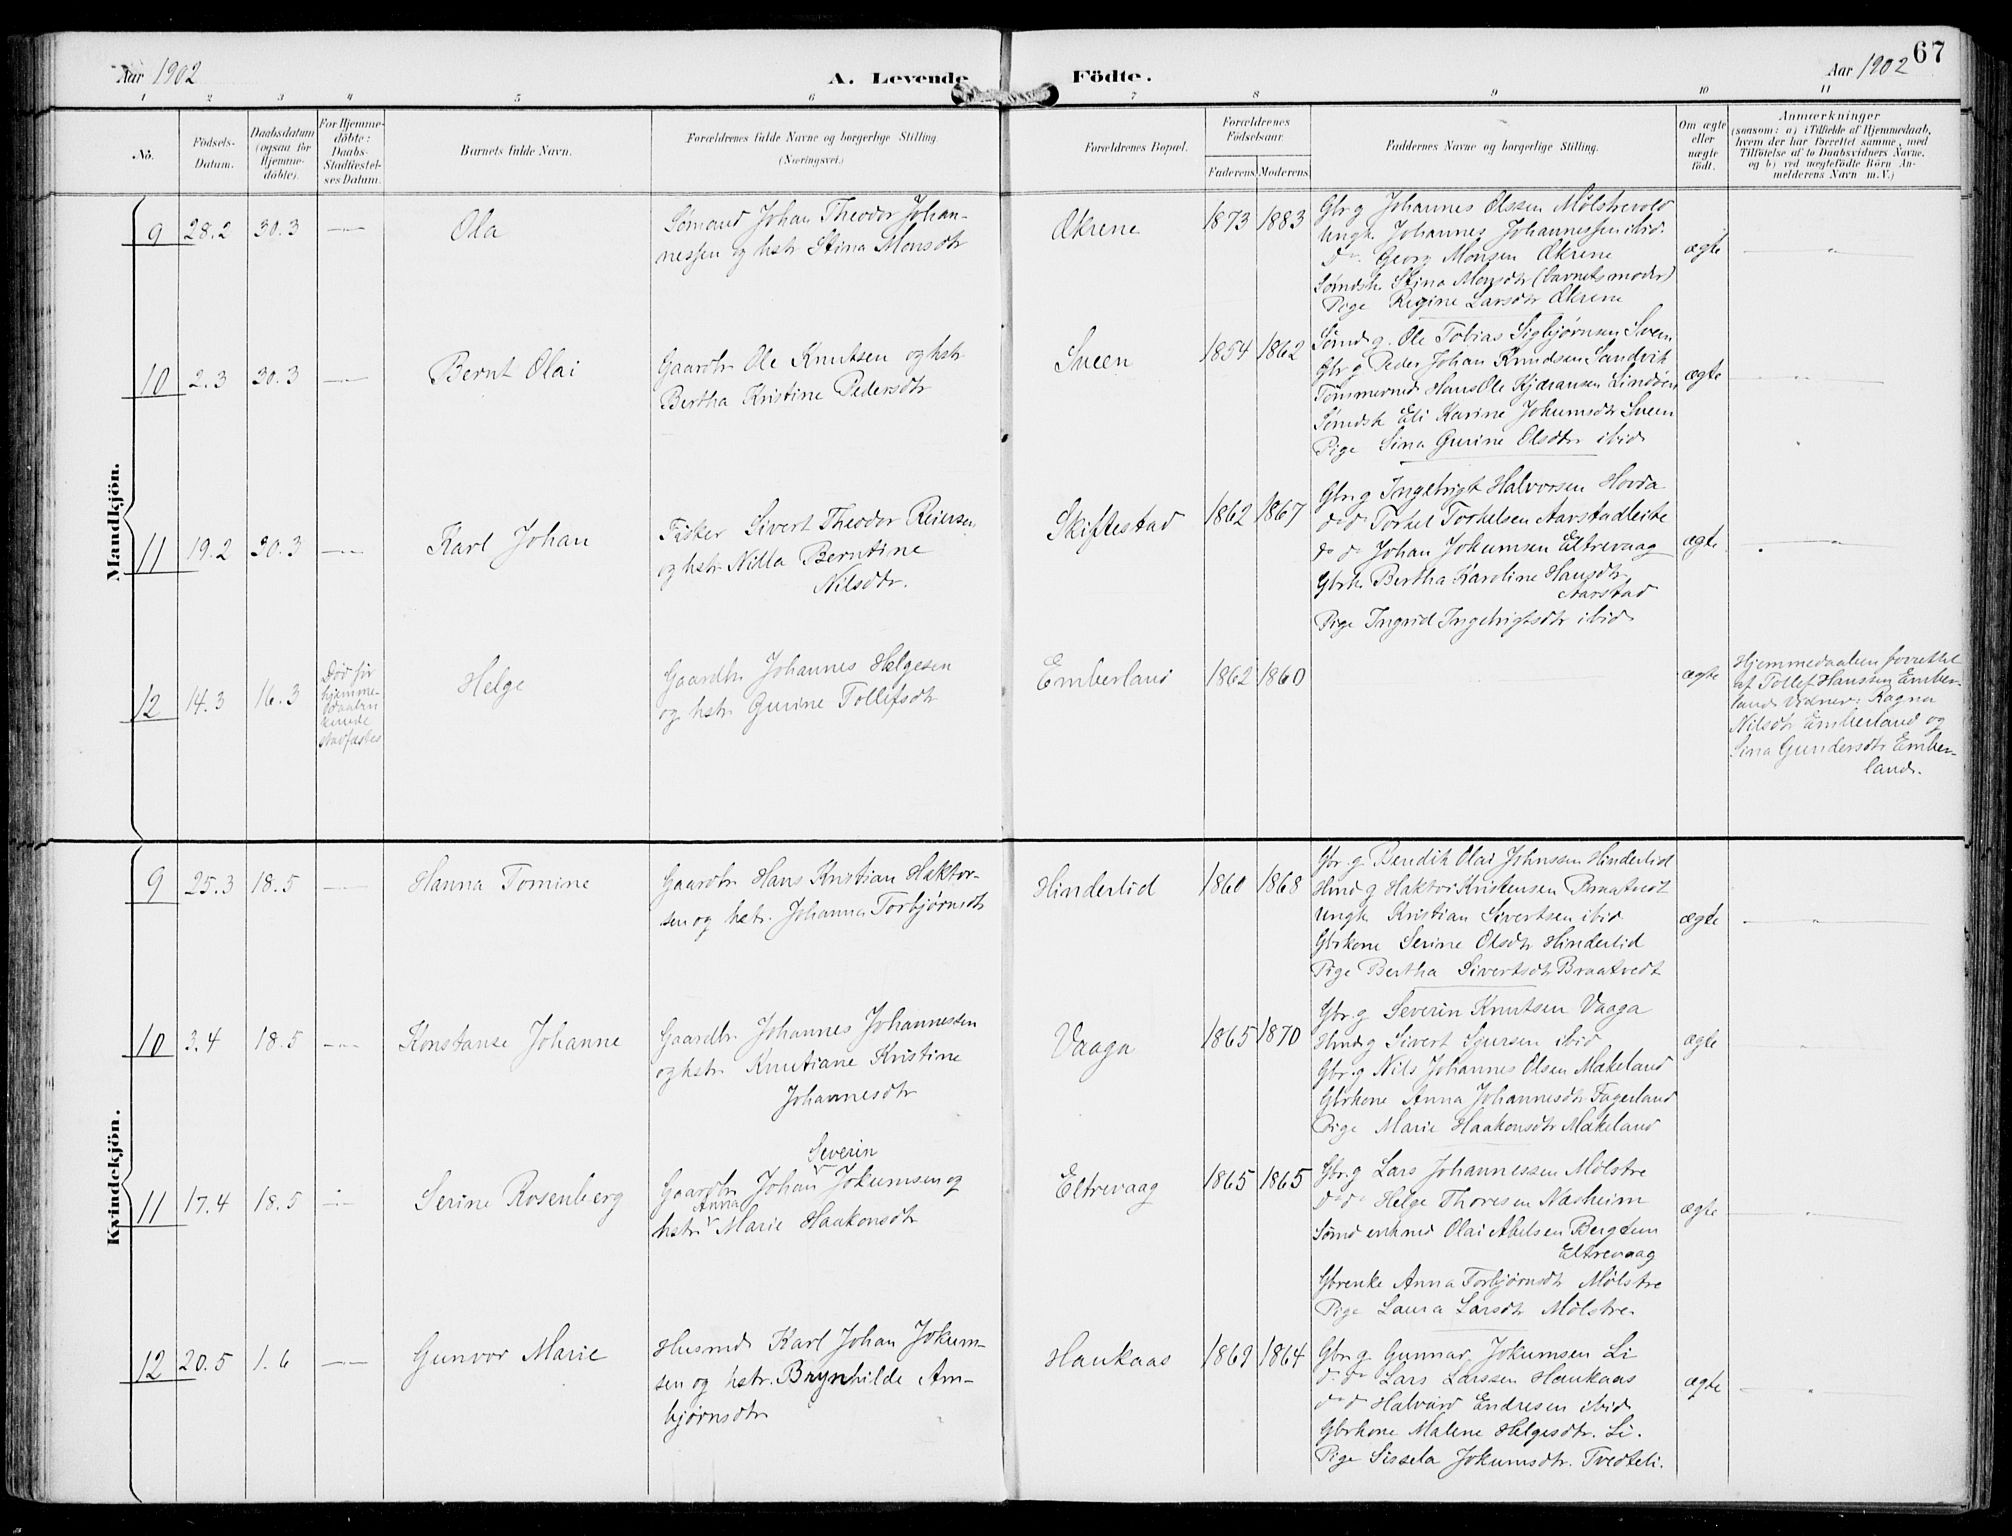 Aar 1902
A. Levende Födte.
Aar 1902
67
1 2 3 4 5 6 7 8 9 10 11
No.
Födsels-
Datum.
Daabsdatum
(ogsaa for
Hjemme-
döbte).
For Hjemme-
döbte:
Daabs-
Stadfæstel-
ses Datum.
Barnets fulde Navn.
Forældrenes fulde Navne og borgerlige Stilling
(Næringsvei.)
Forældrenes Bopæl.
Forældrenes
Födselsaar.
Faderens Moderens
Faddernes Navne og borgerlige Stilling.
Om ægte
eller
uægte
födt.
Anmærkninger
(saasom: a) i Tilfælde af Hjemmedaab,
hvem der har forrettet samme, med
Tilföielse af to Daabsvidners Navne.
og b) ved uægtefödte Börn An-
melderens Navn m. V.)
Mandkjön.
9 28.2 30.3 —
Ola
Sømand Johan Theodor Johan-
nessen og hstr Stina Monsdtr
Økrene
1873 1883
Gbr g Johannes Olssen Mølstrevold
Ungk. Johannes Johannessen ibid.
do Georg Monsen Økrene
Sømdsk Stina Monsdtr (barnets moder)
Pige Regine Larsdtr Økrene
ægte
"
10 2.3 30.3 —
Bernt Olai
Gaardbr Ole Knutsen og hstr
Bertha Kristine Pedersdtr
Sveen
1854 1862
Sømd g. Ole Tobias Sigbjørnsen Sveen
Gbr g Peder Johan Knudsen Sandvik
Tømmermd Hans Ole Kjæransen Lindøen
Sømdsk Eli Karine Johumsdtr Sveen
Pige Sina Gurine Olsdtr ibid
ægte
"
11 19.2 30.3 —
Karl Johan
Fisker Sivert Theodor Reiersen
og hstr Nilla Berntine
Nilsdtr.
Skiftestad
1862 1867
Gbr g Ingebrigt Halvorsen Hovda
do do Torkel Torkelsen Aarstadleite
do do Johan Jokumsen Eltrevaag
Gbrk. Bertha Karoline Hansdtr
Aarstad
Pige Ingrid Ingebrigtsdtr ibid
ægte
"
12 14.3 16.3
Død før
hjemme-
daaben
kunde
stadfæstes
Helge
Gaardbr Johannes Helgesen
og hstr Gurine Tollifsdtr
Emberland
1862 1860
ægte
Hjemmedaaben forrettet
af Tollef Hanssen Ember-
land Vidner: Ragna
Nilsdtr Emberland og
Sina Gundersdtr Ember-
land.
Kvindekjön.
9 25.3 18.5 —
Hanna Tomine
Gaardbr Hans Kristian Haktor-
sen og hstr. Johanna Torbjørnsdtr
Hinderlid
1860 1868
Gbr. g Bendik Olai Johnssen Hinderlid
Hmd g Haktor Kristensen Braatvedt
Ungk Kristian Sivertsen ibid
Gbrkone Serine Olsdtr Hinderlid
Pige Bertha Sivertsdtr Braatvedt
ægte
"
10 3.4 18.5 —
Konstanse Johanne
Gaardbr Johannes Johannessen
og hstr Knutiane Kristine
Johannesdtr
Vaaga
1865 1870
Gbr. g Severin Knutsen Vaaga
Hmd g Sivert Sjursen ibid
Gbr. g Nils Johannes Olsen Mækeland
Gbrkone Anna Johannesdtr Fagerland
Pige Marie Haakonsdtr Mækeland
ægte
"
11 17.4 18.5 —
Serine Rosenberg
Severin
Gaardbr Johan Jokumsen og
Anna
hstr Marie Haakonsdtr
Eltrevaag
1865 1865
Gbr. g Lars Johannessen Mølstre
do do Helge Thoresen Næsheim
Sømd enkmd Olai Abelsen Bergtun
Eltrevaag
Gbrenke Anna Torbjørnsdtr Mølstre
Pige Laura Larsdtr Mølstre
ægte
"
12 20.5 1.6 —
Gunvor Marie
Husmd Karl Johan Jokum-
sen og hstr. Brynhilde Am-
bjørnsdtr
Haukaas
1869 1864
Gbr. g Gunnar Jokumsen Li
do do Lars Larssen Haukaas
do do Halvard Endresen ibid
Gbrkone Malene Helgesdtr. Li.
Pige Sissela Jokumsdtr. Tvedteli.
ægte
"